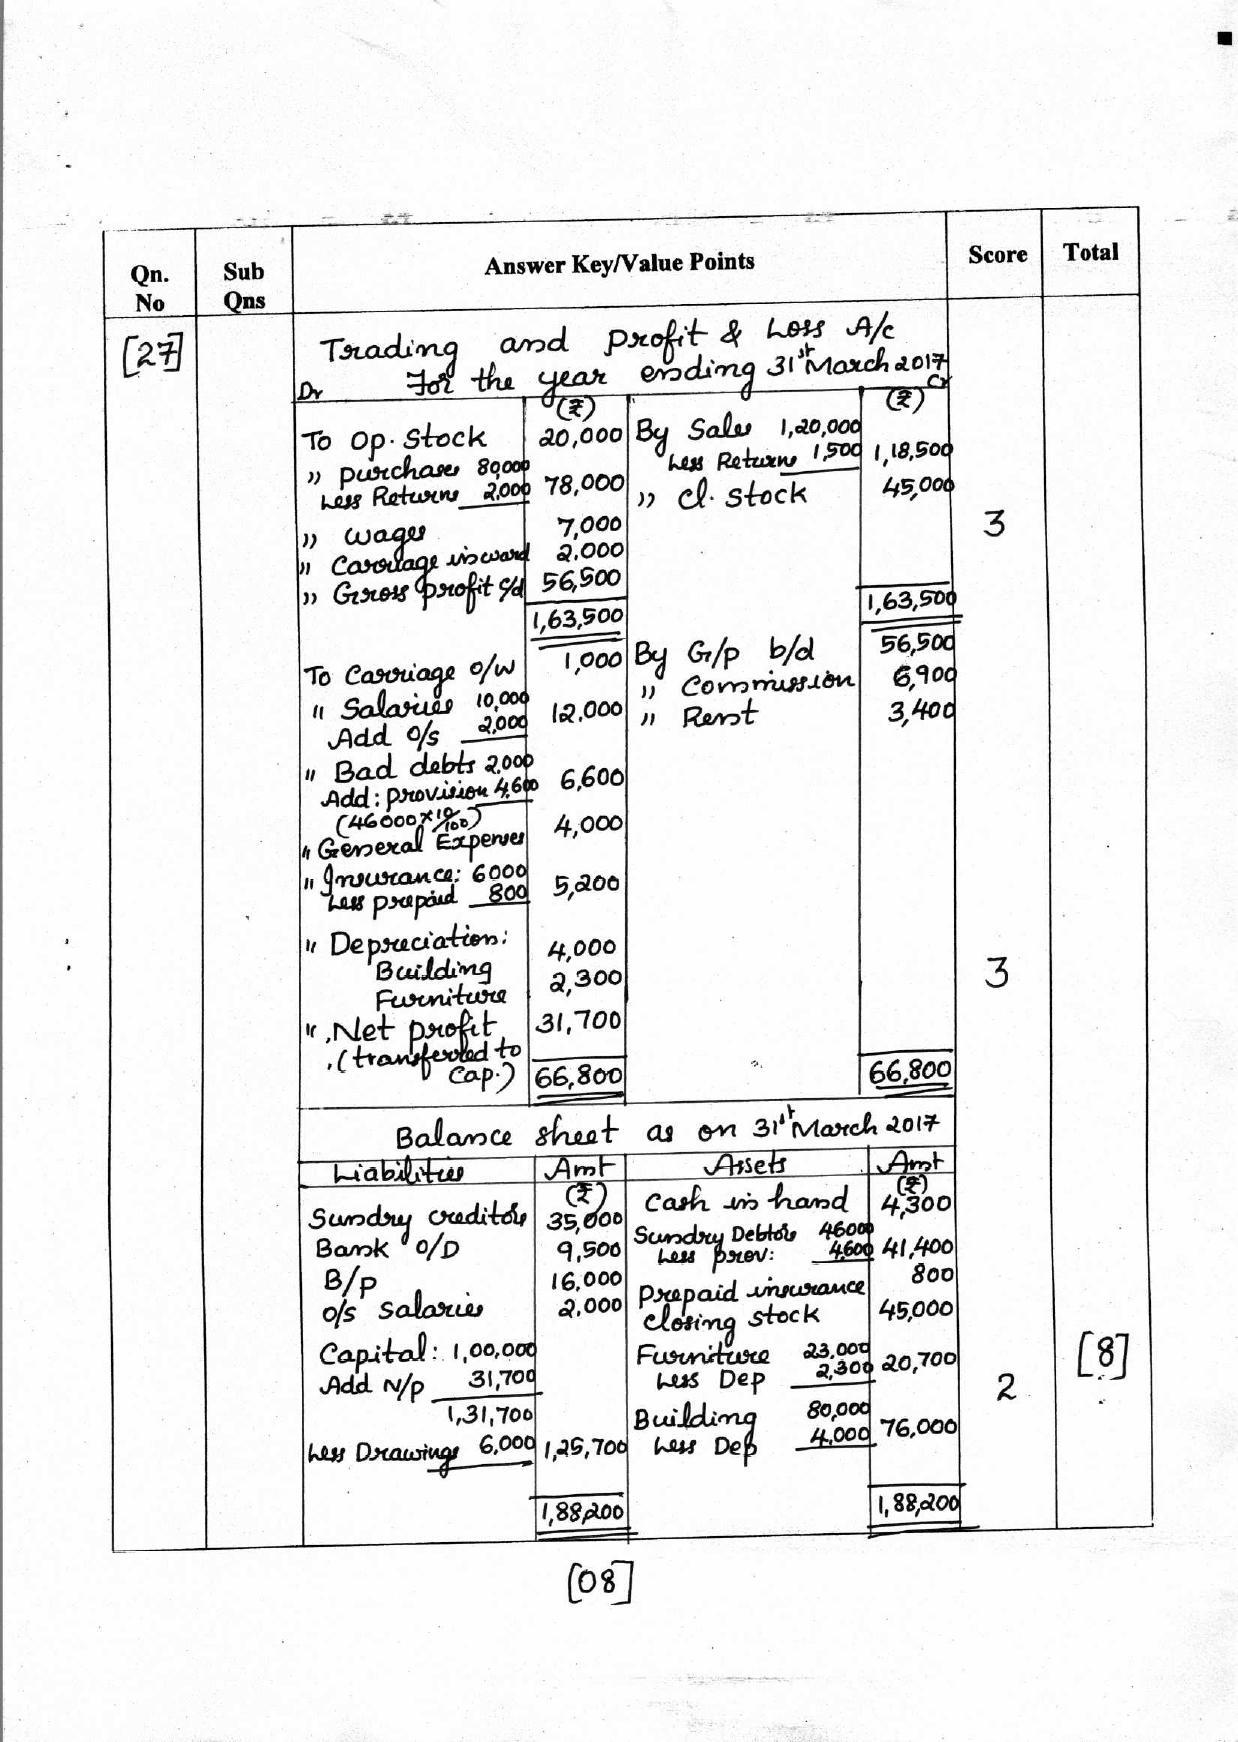 Qn. No Sub Qns Answer Key/Value Points Score Total
[27] Trading and Profit & Loss A/c
For the year ending 31st March 2017
Dr Cr
(₹) (₹)
To Op. Stock 20,000 By Sales 1,20,000
" purchases 80,000 Less Returns 1,500 1,18,500
Less Returns 2,000 78,000 " Cl. Stock 45,000
" Wages 7,000 3
" Carriage inward 2,000
" Gross profit c/d 56,500
1,63,500 1,63,500
To Carriage o/w 1,000 By G/p b/d 56,500
" Salaries 10,000 " Commission 6,900
Add o/s 2,000 12,000 " Rent 3,400
" Bad debts 2,000
Add: provision 4,600 6,600
(46000×10/100)
" General Expenses 4,000
" Insurance: 6000
Less prepaid 800 5,200
" Depreciation:
Building 4,000 3
Furniture 2,300
" Net profit 31,700
(transferred to
Cap.) 66,800 66,800
Balance sheet as on 31st March 2017
Liabilities Amt Assets Amt
(₹) (₹)
Sundry creditors 35,000 Cash in hand 4,300
Bank O/D 9,500 Sundry Debtors 46000
Less prov: 4,600 41,400
B/p 16,000 prepaid insurance 800
o/s salaries 2,000 closing stock 45,000
Capital: 1,00,000 Furniture 23,000
Add N/p 31,700 Less Dep 2,300 20,700 [8]
1,31,700 Building 80,000 2
Less Drawings 6,000 1,25,700 Less Dep 4,000 76,000
1,88,200 1,88,200
[08]